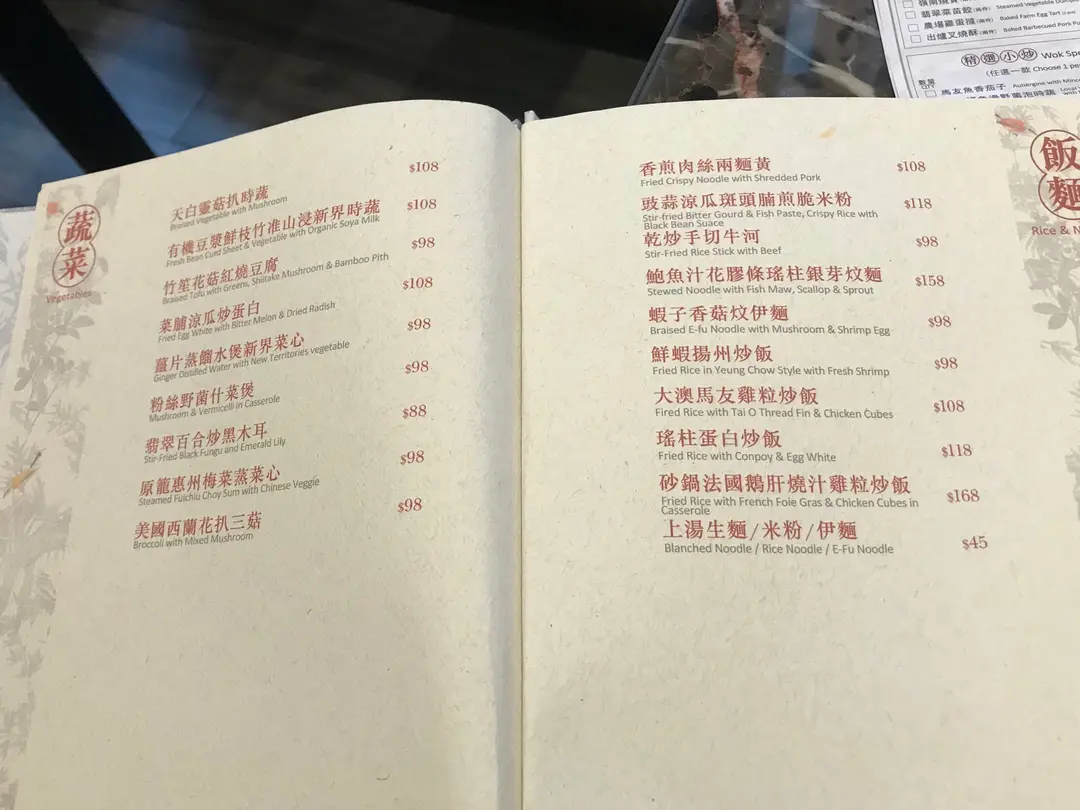 翡翠菜苗餃(兩件) Steamed Vegetable
農場雞蛋撻(兩件) Baked Farm Egg Tart
出爐叉燒酥(兩件) Baked Barbecued Pork
精選小炒 Wok
(任選一款 Choose 1
數量
馬友魚香茄子 Aubergine with
蔬菜
Vegetables
天白靈菇扒時蔬
Braised Vegetable with Mushroom
$108
有機豆漿鮮枝竹准山浸新界時蔬
Fresh Bean Curd Sheet & Vegetable with Organic Soya Milk
$108
竹笙花菇紅燒豆腐
Braised Tofu with Greens, Shiitake Mushroom & Bamboo Pith
$98
菜脯涼瓜炒蛋白
Fried Egg White with Bitter Melon & Dried Radish
$108
薑片蒸餾水煲新界菜心
Ginger Distilled Water with New Territories vegetable
$98
粉絲野菌什菜煲
Mushroom & Vermicelli in Casserole
$98
翡翠百合炒黑木耳
Stir-Fried Black Fungu and Emerald Lily
$88
原籠惠州梅菜蒸菜心
Steamed Fuichiu Choy Sum with Chinese Veggie
$98
美國西蘭花扒三菇
Broccoli with Mixed Mushroom
$98
飯麵
Rice &
香煎肉絲兩麵黃
Fried Crispy Noodle with Shredded Pork
$108
豉蒜涼瓜斑頭腩煎脆米粉
Stir-fried Bitter Gourd & Fish Paste, Crispy Rice with
Black Bean Suace
$118
乾炒手切牛河
Stir-Fried Rice Stick with Beef
$98
鮑魚汁花膠條瑤柱銀芽炆麵
Stewed Noodle with Fish Maw, Scallop & Sprout
$158
蝦子香菇炆伊麵
Braised E-fu Noodle with Mushroom & Shrimp Egg
$98
鮮蝦揚州炒飯
Fried Rice in Yeung Chow Style with Fresh Shrimp
$98
大澳馬友雞粒炒飯
Fired Rice with Tai O Thread Fin & Chicken Cubes
$108
瑤柱蛋白炒飯
Fried Rice with Conpoy & Egg White
$118
砂鍋法國鵝肝燒汁雞粒炒飯
Fried Rice with French Foie Gras & Chicken Cubes in
Casserole
$168
上湯生麵/米粉/伊麵
Blanched Noodle / Rice Noodle / E-Fu Noodle
$45